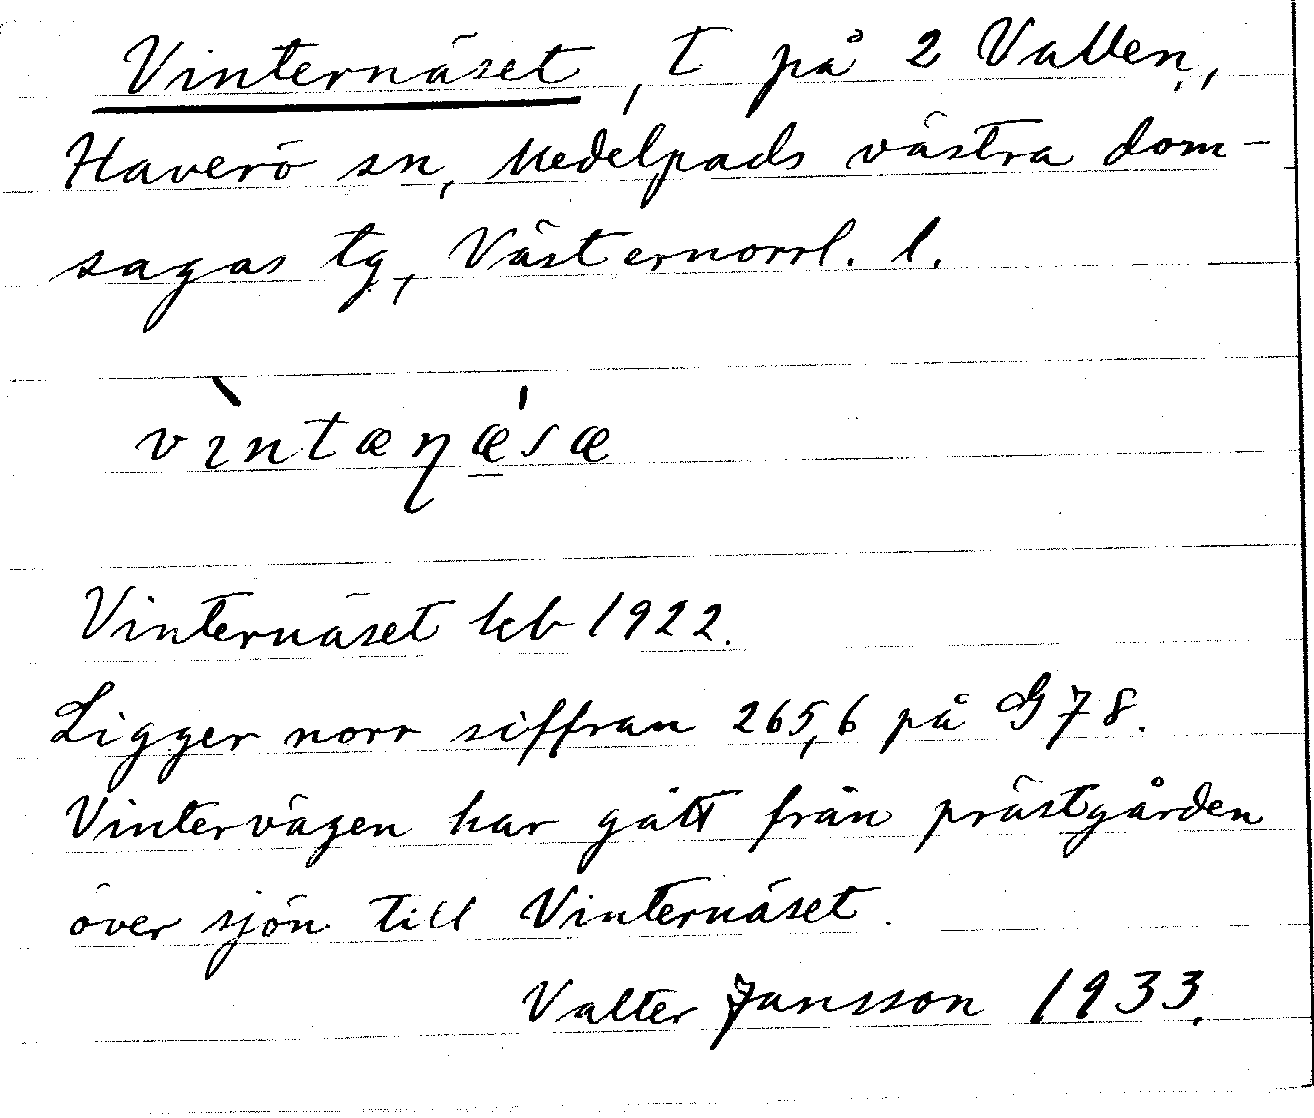 Vinternäset, t på 2 Vallen,
Haverö sn, Medelpads västra dom-
sagas tg, Västernorrl. l.
vìntæɳæ̲'sæ
Vinternäset kb 1922.
Ligger norr siffran 265,6 på G78.
Vintervägen har gått från prästgården
över sjön till Vinternäset.
Valter Jansson 1933.